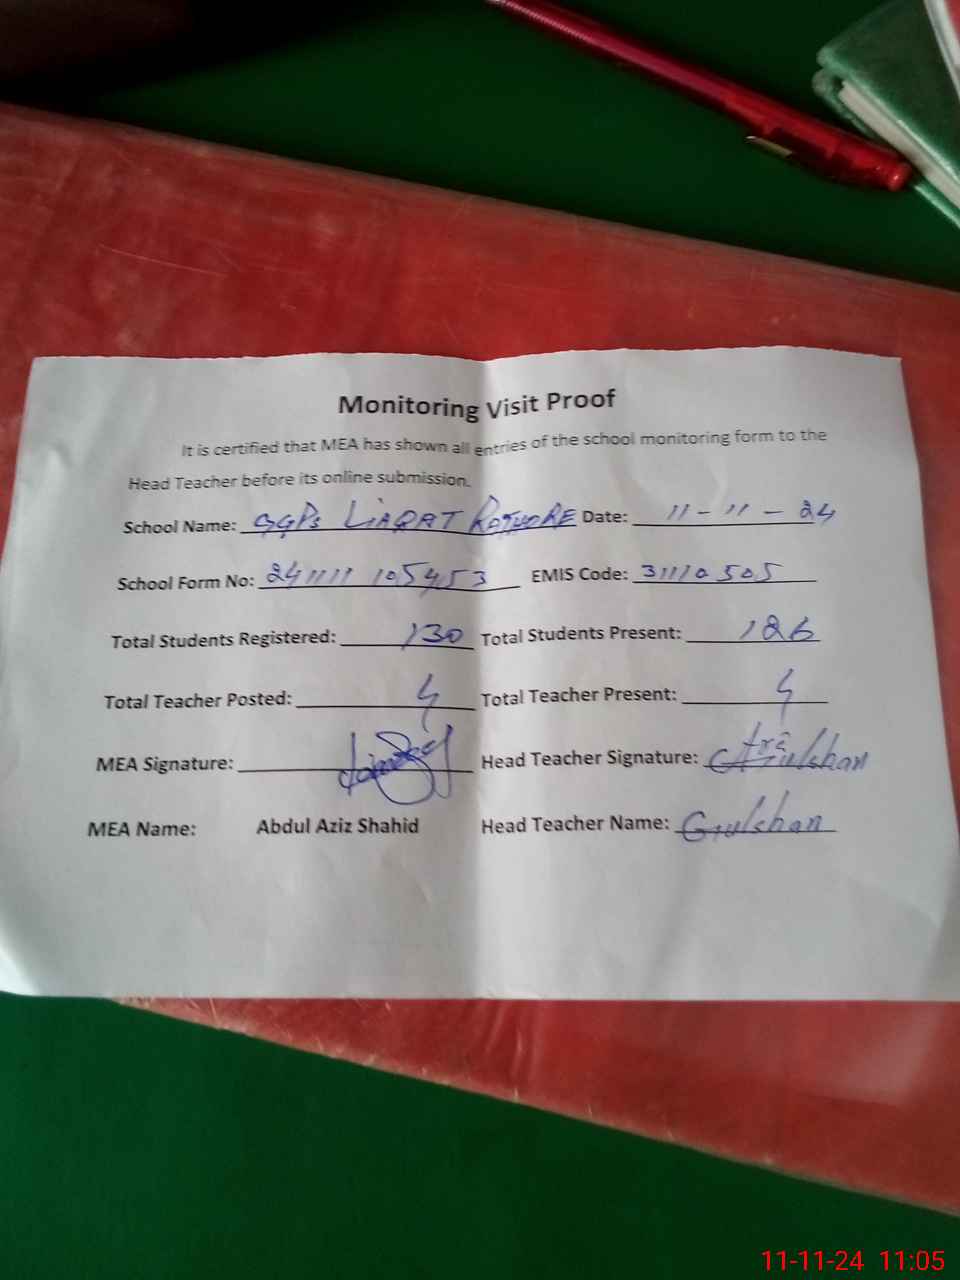 Monitoring Visit Proof
It is certified that MEA has shown all entries of the school monitoring form to the
Head Teacher before its online submission.
School Name: GGPS LIAQAT Date: 11-11-24
School Form No: 241111 105453 EMIS Code: 31110505
Total Students Registered: 130 Total Students Present: 126
Total Teacher Posted: 4 Total Teacher Present: 4
MEA Signature: Head Teacher Signature: Gulshan
MEA Name: Abdul Aziz Shahid Head Teacher Name: Gulshan
11-11-24 11:05